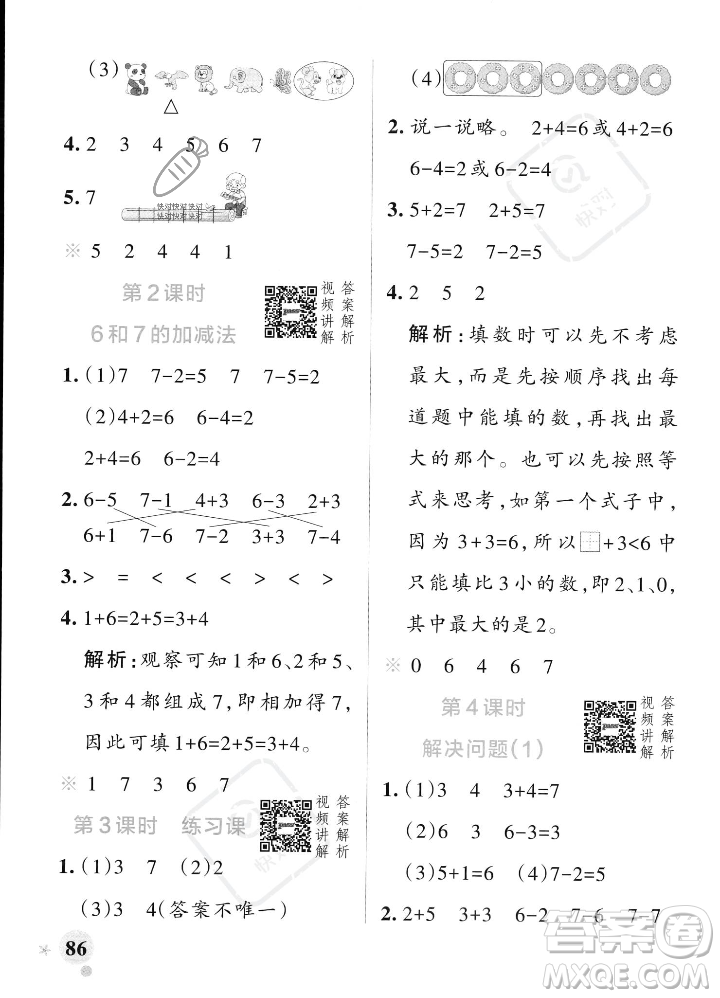 (3)
△
4. 2 3 4 5 6 7
5. 7
快对快对快对
快对快对快对
※ 5 2 4 4 1
第2课时
6和7的加减法
视频讲解
答案解析
1. (1)7 7-2=5 7 7-5=2
(2)4+2=6 6-4=2
2+4=6 6-2=4
2. 6-5 7-1 4+3 6-3 2+3
6+1 7-6 7-2 3+3 7-4
3. > = < < < > <
4. 1+6=2+5=3+4
解析:观察可知1和6、2和5、
3和4都组成7,即相加得7,
因此可填1+6=2+5=3+4。
※ 1 7 3 6 7
第3课时 练习课
视频讲解
答案解析
1. (1)3 7 (2)2
(3)3 4(答案不唯一)
86
(4)
2. 说一说略。 2+4=6或4+2=6
6-4=2或6-2=4
3. 5+2=7 2+5=7
7-5=2 7-2=5
4. 2 5 2
解析:填数时可以先不考虑
最大,而是先按顺序找出每
道题中能填的数,再找出最
大的那个。也可以先按照等
式来思考,如第一个式子中,
因为3+3=6,所以□+3<6中
只能填比3小的数,即2、1、0,
其中最大的是2。
※ 0 6 4 6 7
第4课时
解决问题(1)
视频讲解
答案解析
1. (1)3 4 3+4=7
(2)6 3 6-3=3
(3)5+1=6 (4)7-2=5
2. 2+5 3+3 6-0 7-6 7-7
答案圈
MXQE.COM